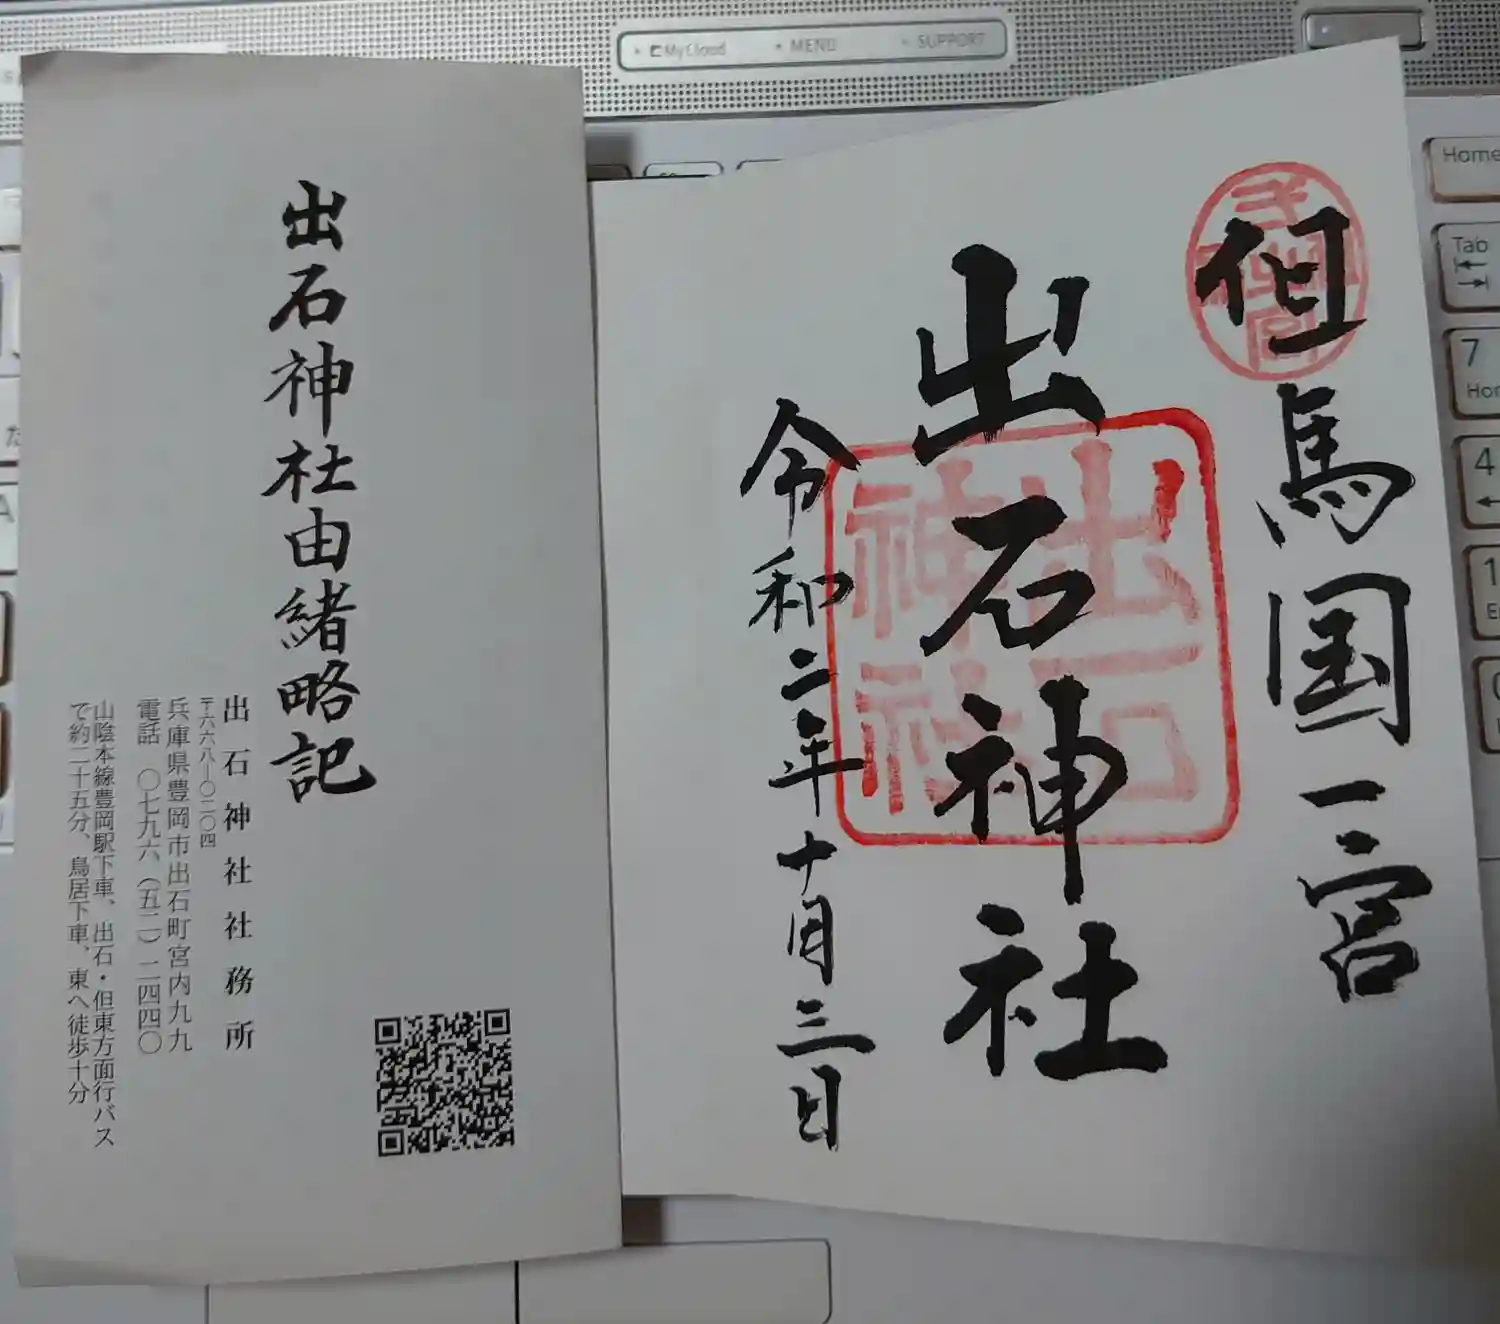 MyCloud
MENU
SUPPORT
出石神社由緒略記
出石神社社務所
〒六六八―〇二〇四
兵庫県豊岡市出石町宮内九九
電話 〇七九六(五二)二四四〇
山陰本線豊岡駅下車、出石・但東方面行バス
で約二十五分、鳥居下車、東へ徒歩十分
但馬国一宮
出石神社
令和二年十月三日
出石
神社
Home
Tab
7
Hom
4
1